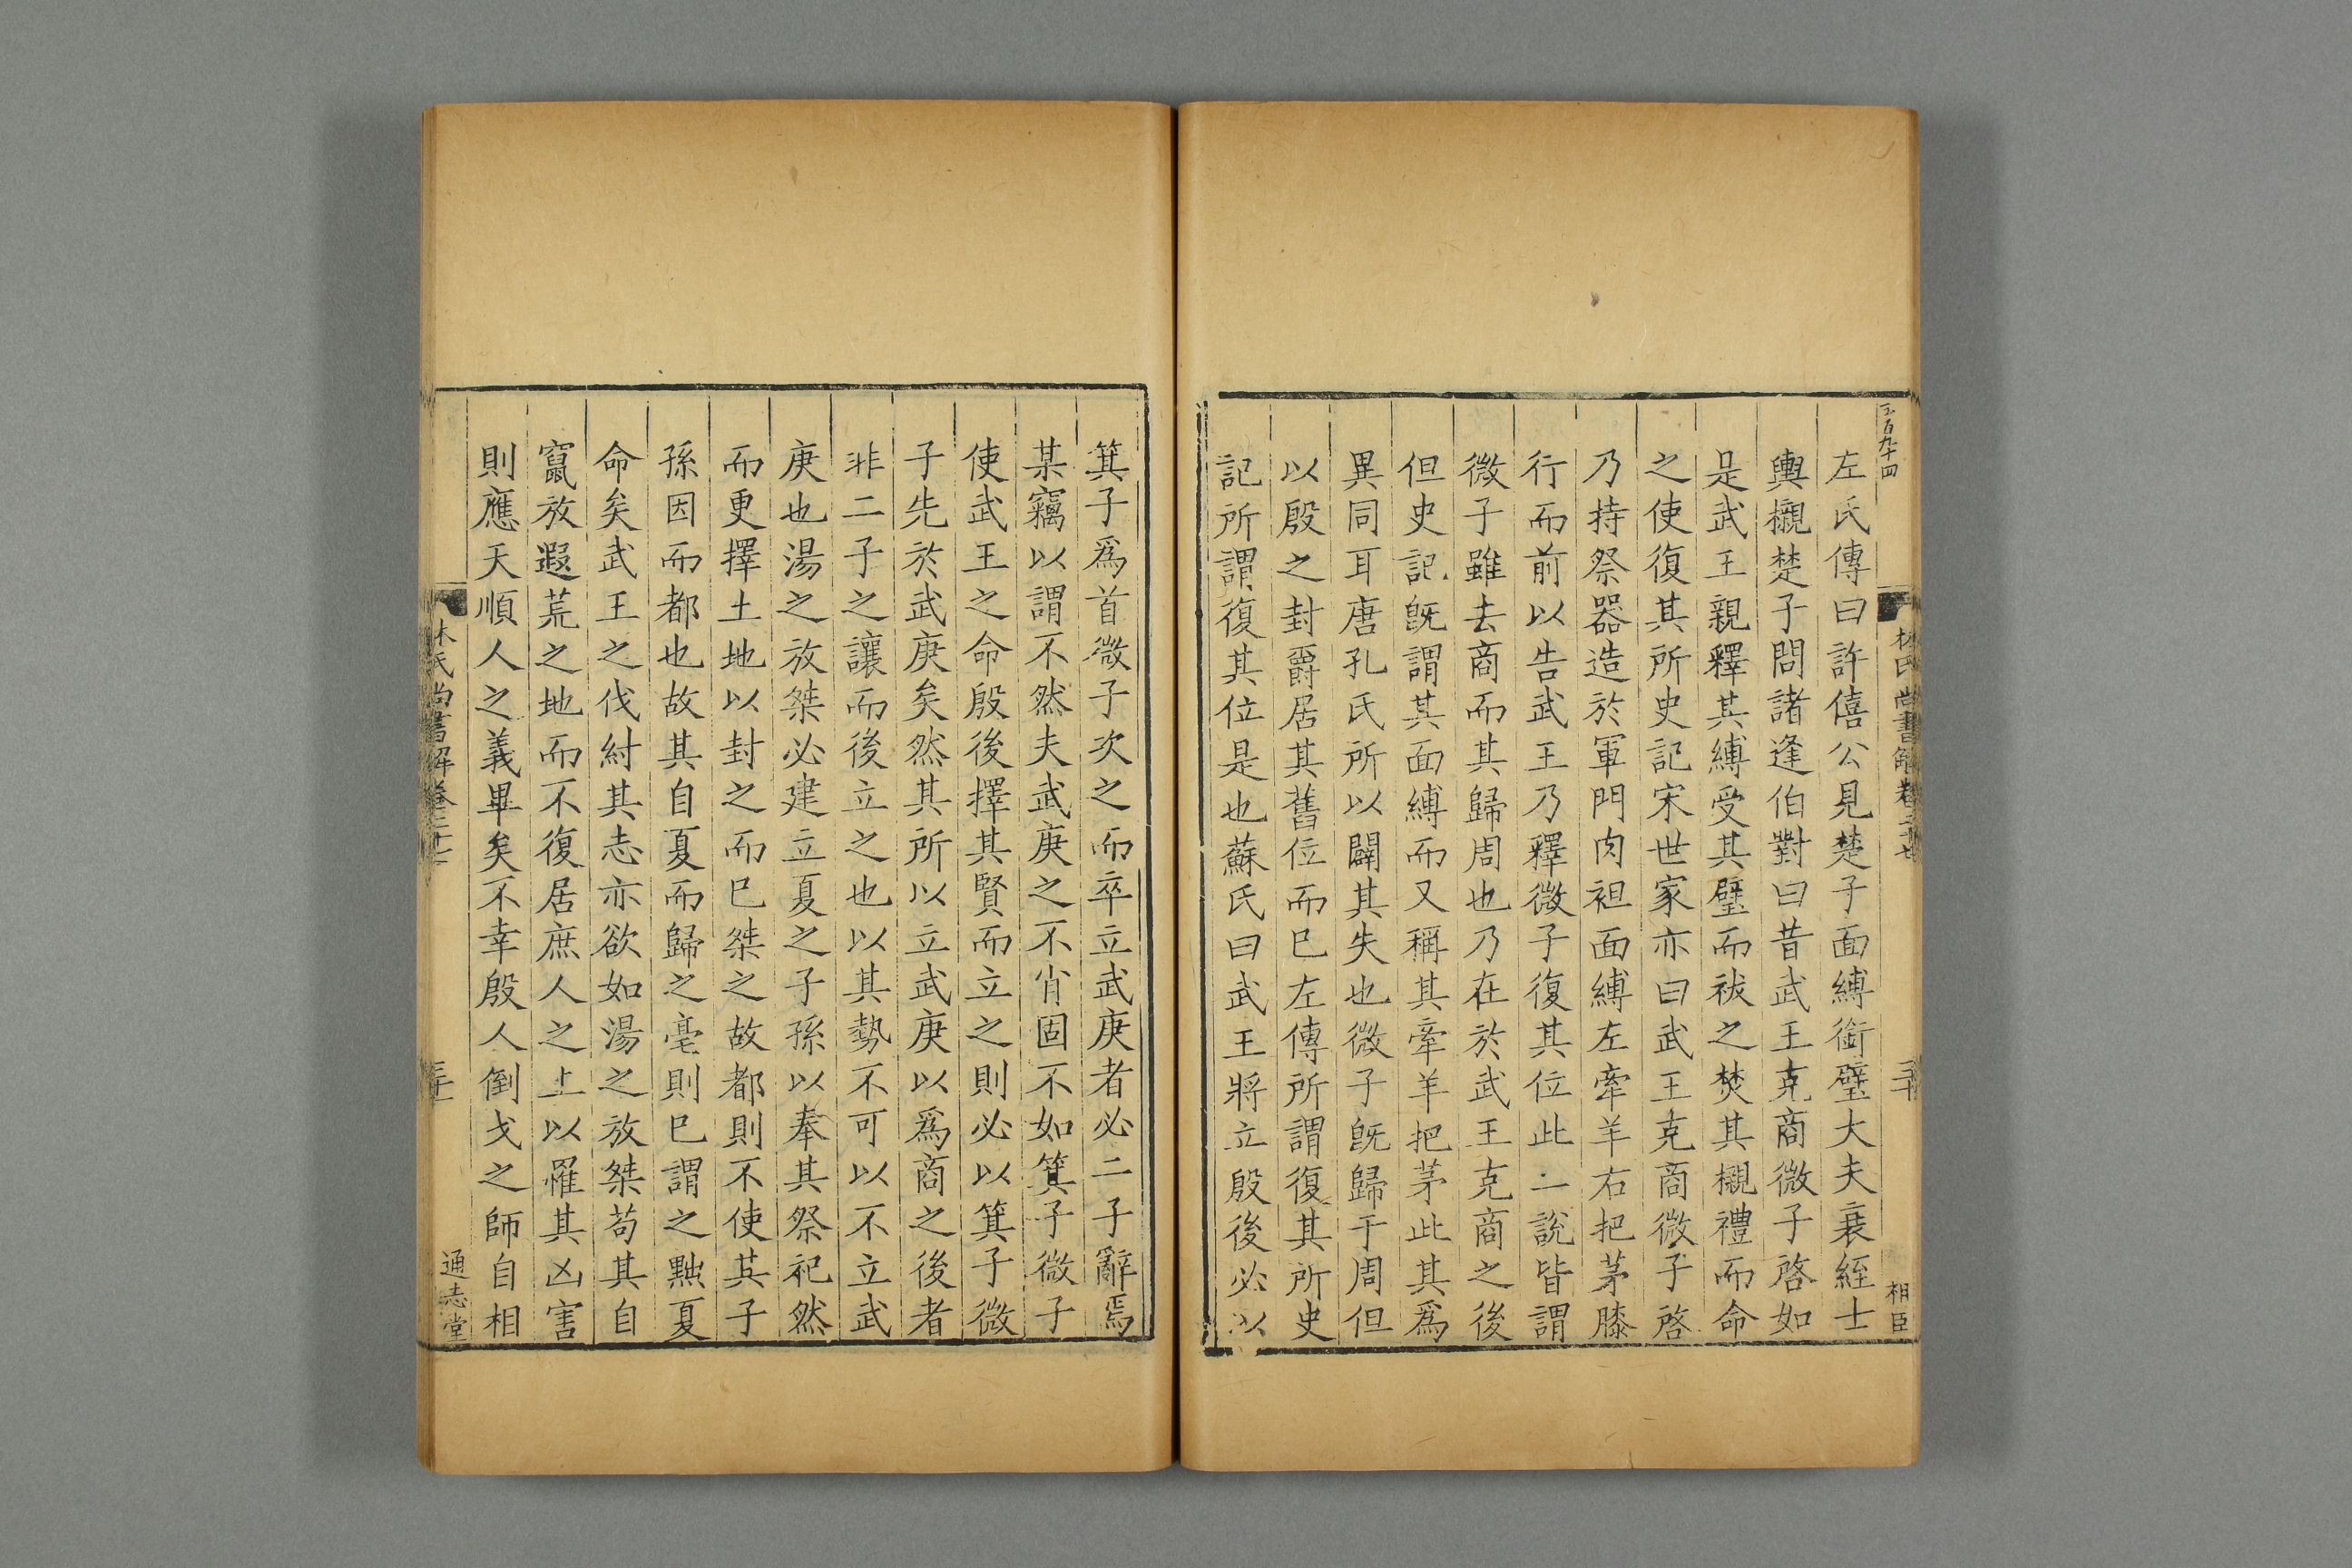 五百九十四
林氏尚書解卷二十七
三十
相臣
左氏傳曰許僖公見楚子面縛銜璧大夫衰絰士
輿櫬楚子問諸逢伯對曰昔武王克商微子啓如
是武王親釋其縛受其璧而祓之焚其櫬禮而命
之使復其所史記宋世家亦曰武王克商微子啓
乃持祭器造於軍門肉袒面縛左牽羊右把茅膝
行而前以告武王乃釋微子復其位此二說皆謂
微子雖去商而其歸周也乃在於武王克商之後
但史記旣謂其面縛而又稱其牽羊把茅此其爲
異同耳唐孔氏所以闢其失也微子旣歸于周但
以殷之封爵居其舊位而已左傳所謂復其所史
記所謂復其位是也蘇氏曰武王將立殷後必以
箕子爲首微子次之而卒立武庚者必二子辭焉
某竊以謂不然夫武庚之不肖固不如箕子微子
使武王之命殷後擇其賢而立之則必以箕子微
子先於武庚矣然其所以立武庚以爲商之後者
非二子之讓而後立之也以其勢不可以不立武
庚也湯之放桀必建立夏之子孫以奉其祭祀然
而更擇土地以封之而已桀之故都則不使其子
孫因而都也故其自夏而歸之亳則已謂之黜夏
命矣武王之伐紂其志亦欲如湯之放桀苟其自
竄放遐荒之地而不復居庶人之上以罹其凶害
則應天順人之義畢矣不幸殷人倒戈之師自相
林氏尚書解卷二十七
三十一
通志堂